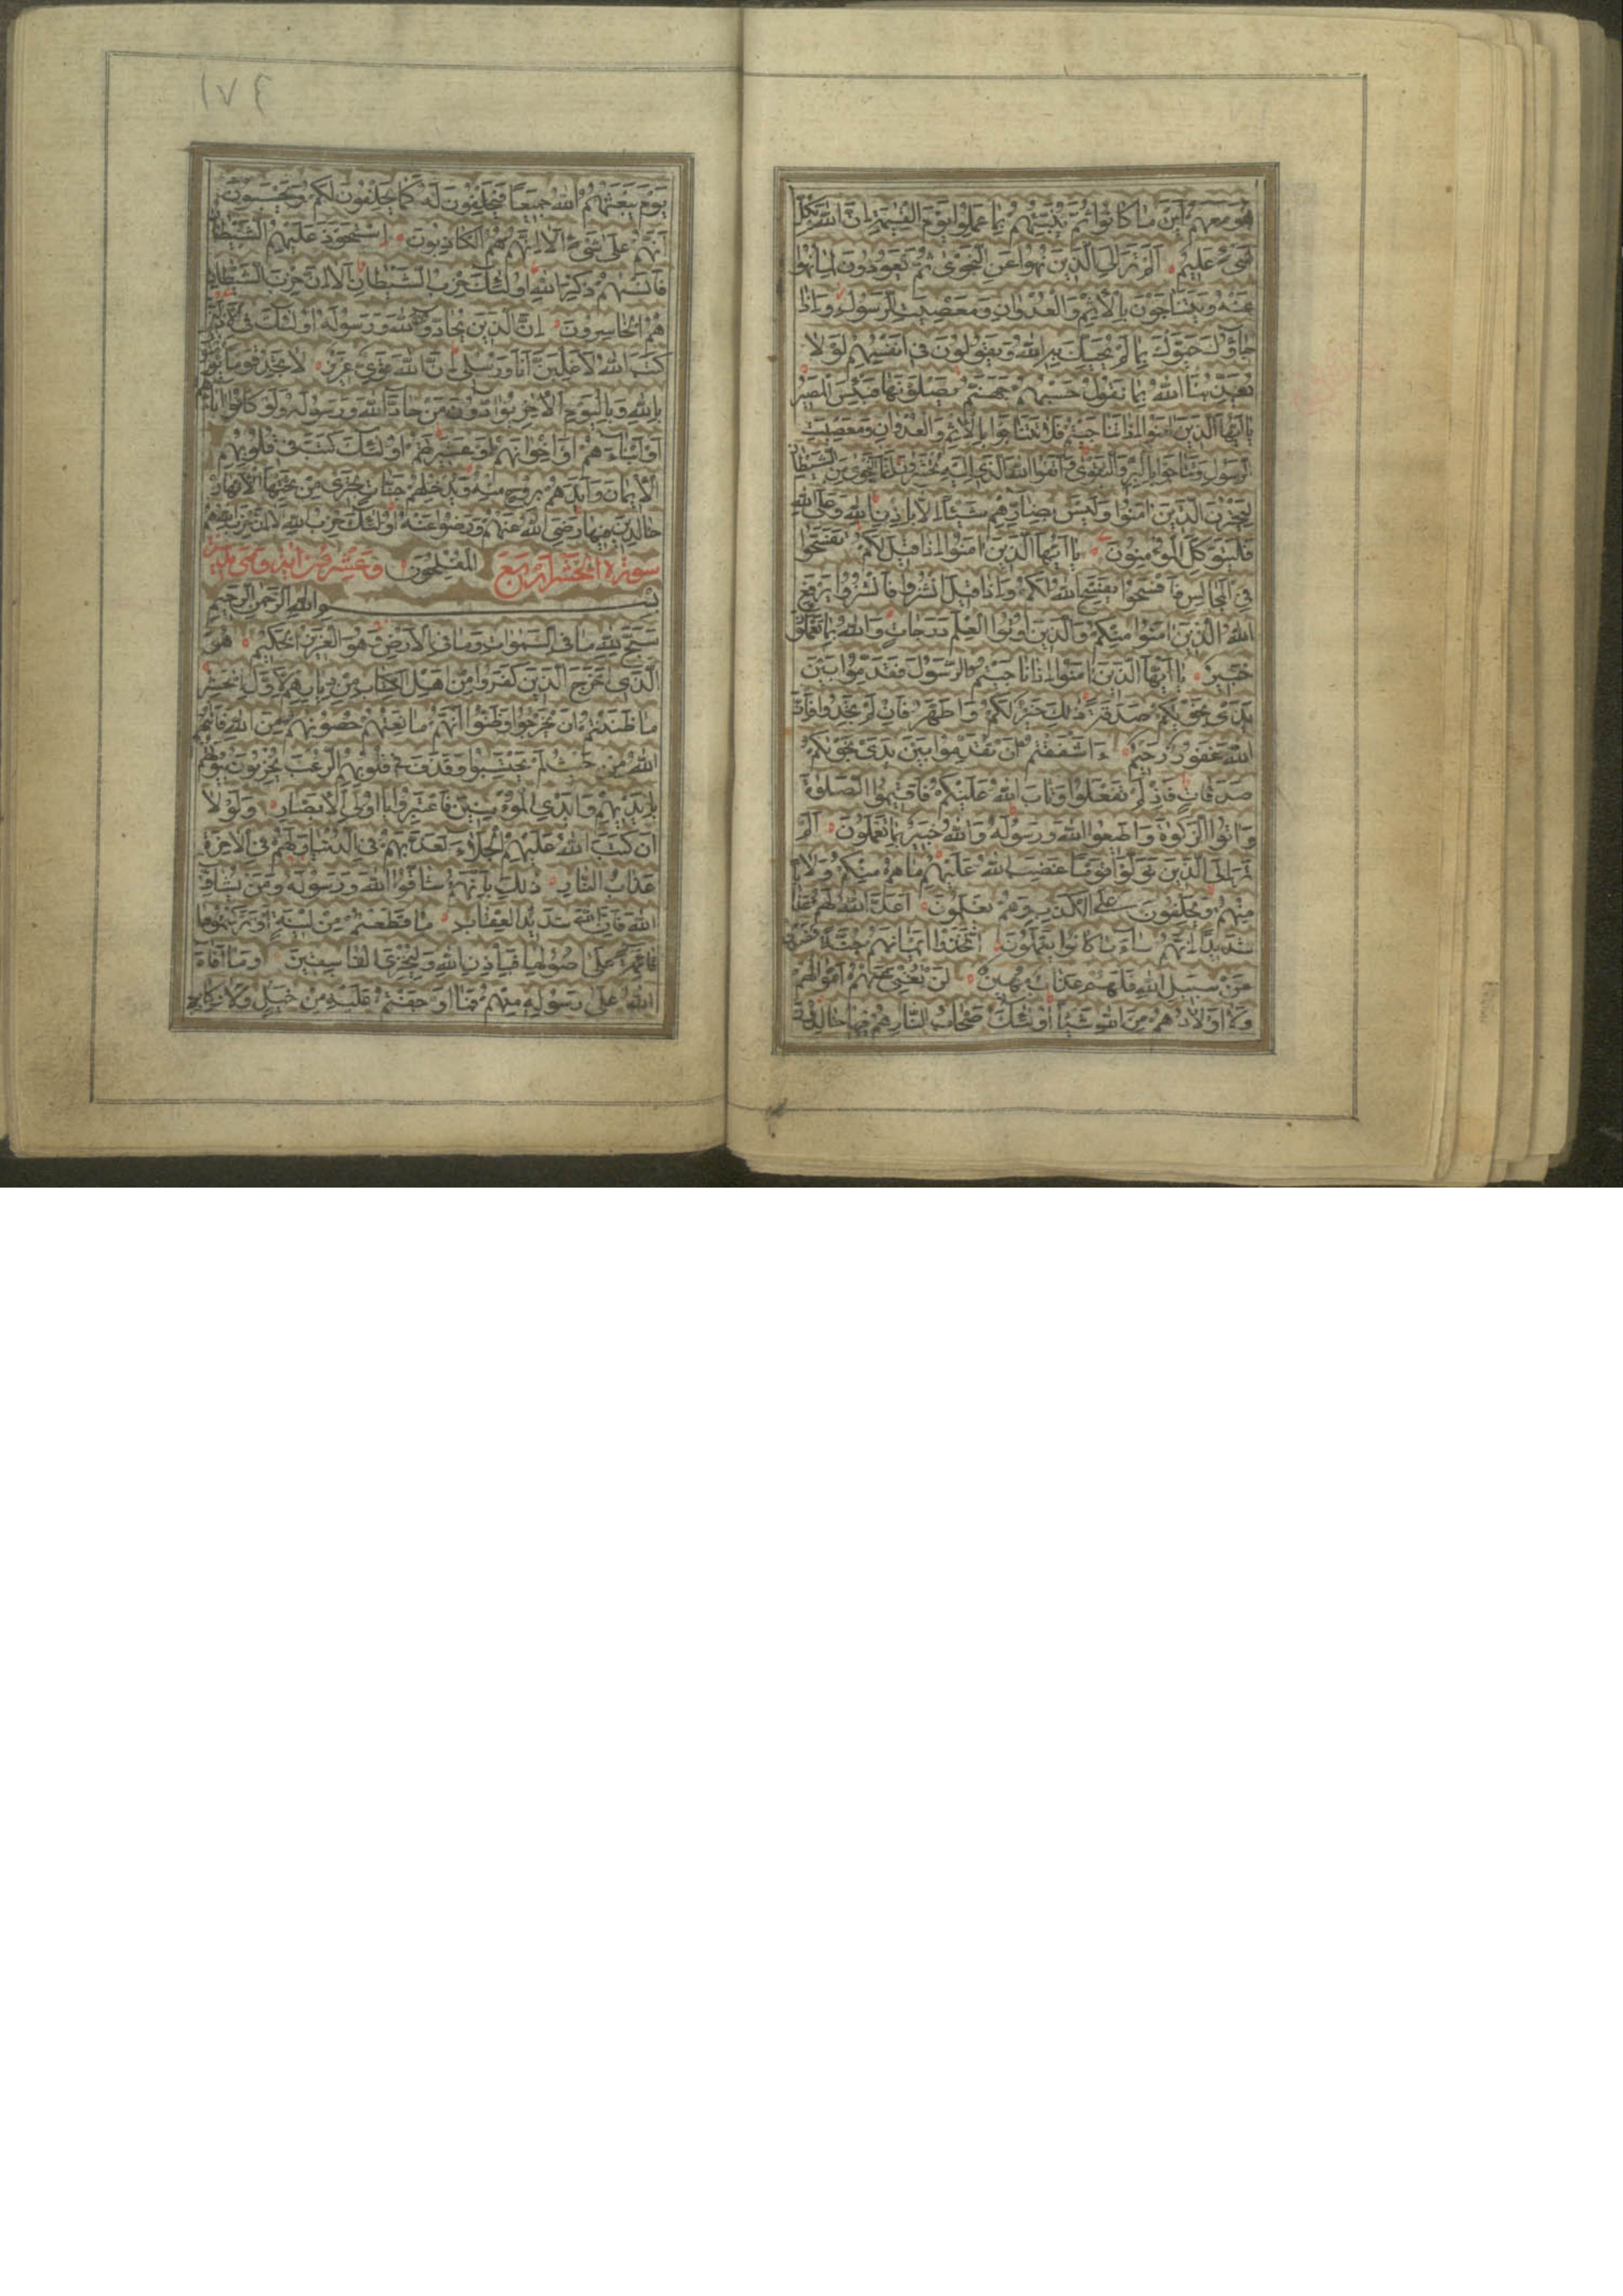 هُوَ مَعَهُمْ أَيْنَ مَا كَانُوا ثُمَّ يُنَبِّئُهُمْ بِمَا عَمِلُوا يَوْمَ الْقِيٰمَةِ إِنَّ اللّٰهَ بِكُلِّ
شَيْءٍ عَلِيمٌ أَلَمْ تَرَ إِلَى الَّذِينَ نُهُوا عَنِ النَّجْوٰى ثُمَّ يَعُودُونَ لِمَا نُهُوا
عَنْهُ وَيَتَنَاجَوْنَ بِالْإِثْمِ وَالْعُدْوَانِ وَمَعْصِيَتِ الرَّسُولِ وَإِذَا
جَاؤُكَ حَيَّوْكَ بِمَا لَمْ يُحَيِّكَ بِهِ اللّٰهُ وَيَقُولُونَ فِي أَنْفُسِهِمْ لَوْ لَا
يُعَذِّبُنَا اللّٰهُ بِمَا نَقُولُ حَسْبُهُمْ جَهَنَّمُ يَصْلَوْنَهَا فَبِئْسَ الْمَصِيرُ
يَا أَيُّهَا الَّذِينَ اٰمَنُوا إِذَا تَنَاجَيْتُمْ فَلَا تَتَنَاجَوْا بِالْإِثْمِ وَالْعُدْوَانِ وَمَعْصِيَتِ
الرَّسُولِ وَتَنَاجَوْا بِالْبِرِّ وَالتَّقْوٰى وَاتَّقُوا اللّٰهَ الَّذِي إِلَيْهِ تُحْشَرُونَ إِنَّمَا النَّجْوٰى مِنَ الشَّيْطَانِ
لِيَحْزُنَ الَّذِينَ اٰمَنُوا وَلَيْسَ بِضَارِّهِمْ شَيْئًا إِلَّا بِإِذْنِ اللّٰهِ وَعَلَى اللّٰهِ
فَلْيَتَوَكَّلِ الْمُؤْمِنُونَ يَا أَيُّهَا الَّذِينَ اٰمَنُوا إِذَا قِيلَ لَكُمْ تَفَسَّحُوا
فِي الْمَجَالِسِ فَافْسَحُوا يَفْسَحِ اللّٰهُ لَكُمْ وَإِذَا قِيلَ انْشُزُوا فَانْشُزُوا يَرْفَعِ
اللّٰهُ الَّذِينَ اٰمَنُوا مِنْكُمْ وَالَّذِينَ أُوتُوا الْعِلْمَ دَرَجَاتٍ وَاللّٰهُ بِمَا تَعْمَلُونَ
خَبِيرٌ يَا أَيُّهَا الَّذِينَ اٰمَنُوا إِذَا نَاجَيْتُمُ الرَّسُولَ فَقَدِّمُوا بَيْنَ
يَدَيْ نَجْوٰيكُمْ صَدَقَةً ذٰلِكَ خَيْرٌ لَكُمْ وَأَطْهَرُ فَإِنْ لَمْ تَجِدُوا فَإِنَّ
اللّٰهَ غَفُورٌ رَحِيمٌ ءَأَشْفَقْتُمْ أَنْ تُقَدِّمُوا بَيْنَ يَدَيْ نَجْوٰيكُمْ
صَدَقَاتٍ فَإِذْ لَمْ تَفْعَلُوا وَتَابَ اللّٰهُ عَلَيْكُمْ فَأَقِيمُوا الصَّلٰوةَ
وَاٰتُوا الزَّكٰوةَ وَأَطِيعُوا اللّٰهَ وَرَسُولَهُ وَاللّٰهُ خَبِيرٌ بِمَا تَعْمَلُونَ أَلَمْ
تَرَ إِلَى الَّذِينَ تَوَلَّوْا قَوْمًا غَضِبَ اللّٰهُ عَلَيْهِمْ مَا هُمْ مِنْكُمْ وَلَا
مِنْهُمْ وَيَحْلِفُونَ عَلَى الْكَذِبِ وَهُمْ يَعْلَمُونَ أَعَدَّ اللّٰهُ لَهُمْ عَذَابًا
شَدِيدًا إِنَّهُمْ سَاءَ مَا كَانُوا يَعْمَلُونَ اتَّخَذُوا أَيْمَانَهُمْ جُنَّةً فَصَدُّوا
عَنْ سَبِيلِ اللّٰهِ فَلَهُمْ عَذَابٌ مُهِينٌ لَنْ تُغْنِيَ عَنْهُمْ أَمْوَالُهُمْ
وَلَا أَوْلَادُهُمْ مِنَ اللّٰهِ شَيْئًا أُولٰئِكَ أَصْحَابُ النَّارِ هُمْ فِيهَا خَالِدُونَ
١٧٤
يَوْمَ يَبْعَثُهُمُ اللّٰهُ جَمِيعًا فَيَحْلِفُونَ لَهُ كَمَا يَحْلِفُونَ لَكُمْ وَيَحْسَبُونَ
أَنَّهُمْ عَلَى شَيْءٍ أَلَا إِنَّهُمْ هُمُ الْكَاذِبُونَ اسْتَحْوَذَ عَلَيْهِمُ الشَّيْطَانُ
فَأَنْسٰيهُمْ ذِكْرَ اللّٰهِ أُولٰئِكَ حِزْبُ الشَّيْطَانِ أَلَا إِنَّ حِزْبَ الشَّيْطَانِ
هُمُ الْخَاسِرُونَ إِنَّ الَّذِينَ يُحَادُّونَ اللّٰهَ وَرَسُولَهُ أُولٰئِكَ فِي الْأَذَلِّينَ
كَتَبَ اللّٰهُ لَأَغْلِبَنَّ أَنَا وَرُسُلِي إِنَّ اللّٰهَ قَوِيٌّ عَزِيزٌ لَا تَجِدُ قَوْمًا يُؤْمِنُونَ
بِاللّٰهِ وَبِالْيَوْمِ الْاٰخِرِ يُوَادُّونَ مَنْ حَادَّ اللّٰهَ وَرَسُولَهُ وَلَوْ كَانُوا اٰبَاءَهُمْ
أَوْ أَبْنَاءَهُمْ أَوْ إِخْوَانَهُمْ أَوْ عَشِيرَتَهُمْ أُولٰئِكَ كَتَبَ فِي قُلُوبِهِمُ
الْإِيمَانَ وَأَيَّدَهُمْ بِرُوحٍ مِنْهُ وَيُدْخِلُهُمْ جَنَّاتٍ تَجْرِي مِنْ تَحْتِهَا الْأَنْهَارُ
خَالِدِينَ فِيهَا رَضِيَ اللّٰهُ عَنْهُمْ وَرَضُوا عَنْهُ أُولٰئِكَ حِزْبُ اللّٰهِ أَلَا إِنَّ حِزْبَ اللّٰهِ هُمُ
سورة الحشر اربع الْمُفْلِحُونَ وعشرون اية وهى مدنية
بِسْمِ اللّٰهِ الرَّحْمٰنِ الرَّحِيمِ
سَبَّحَ لِلّٰهِ مَا فِي السَّمٰوَاتِ وَمَا فِي الْأَرْضِ وَهُوَ الْعَزِيزُ الْحَكِيمُ هُوَ
الَّذِي أَخْرَجَ الَّذِينَ كَفَرُوا مِنْ أَهْلِ الْكِتَابِ مِنْ دِيَارِهِمْ لِأَوَّلِ الْحَشْرِ
مَا ظَنَنْتُمْ أَنْ يَخْرُجُوا وَظَنُّوا أَنَّهُمْ مَانِعَتُهُمْ حُصُونُهُمْ مِنَ اللّٰهِ فَأَتٰيهُمُ
اللّٰهُ مِنْ حَيْثُ لَمْ يَحْتَسِبُوا وَقَذَفَ فِي قُلُوبِهِمُ الرُّعْبَ يُخْرِبُونَ بُيُوتَهُمْ
بِأَيْدِيهِمْ وَأَيْدِي الْمُؤْمِنِينَ فَاعْتَبِرُوا يَا أُولِي الْأَبْصَارِ وَلَوْ لَا
أَنْ كَتَبَ اللّٰهُ عَلَيْهِمُ الْجَلَاءَ لَعَذَّبَهُمْ فِي الدُّنْيَا وَلَهُمْ فِي الْاٰخِرَةِ
عَذَابُ النَّارِ ذٰلِكَ بِأَنَّهُمْ شَاقُّوا اللّٰهَ وَرَسُولَهُ وَمَنْ يُشَاقِّ
اللّٰهَ فَإِنَّ اللّٰهَ شَدِيدُ الْعِقَابِ مَا قَطَعْتُمْ مِنْ لِينَةٍ أَوْ تَرَكْتُمُوهَا
قَائِمَةً عَلَى أُصُولِهَا فَبِإِذْنِ اللّٰهِ وَلِيُخْزِيَ الْفَاسِقِينَ وَمَا أَفَاءَ
اللّٰهُ عَلَى رَسُولِهِ مِنْهُمْ فَمَا أَوْجَفْتُمْ عَلَيْهِ مِنْ خَيْلٍ وَلَا رِكَابٍ